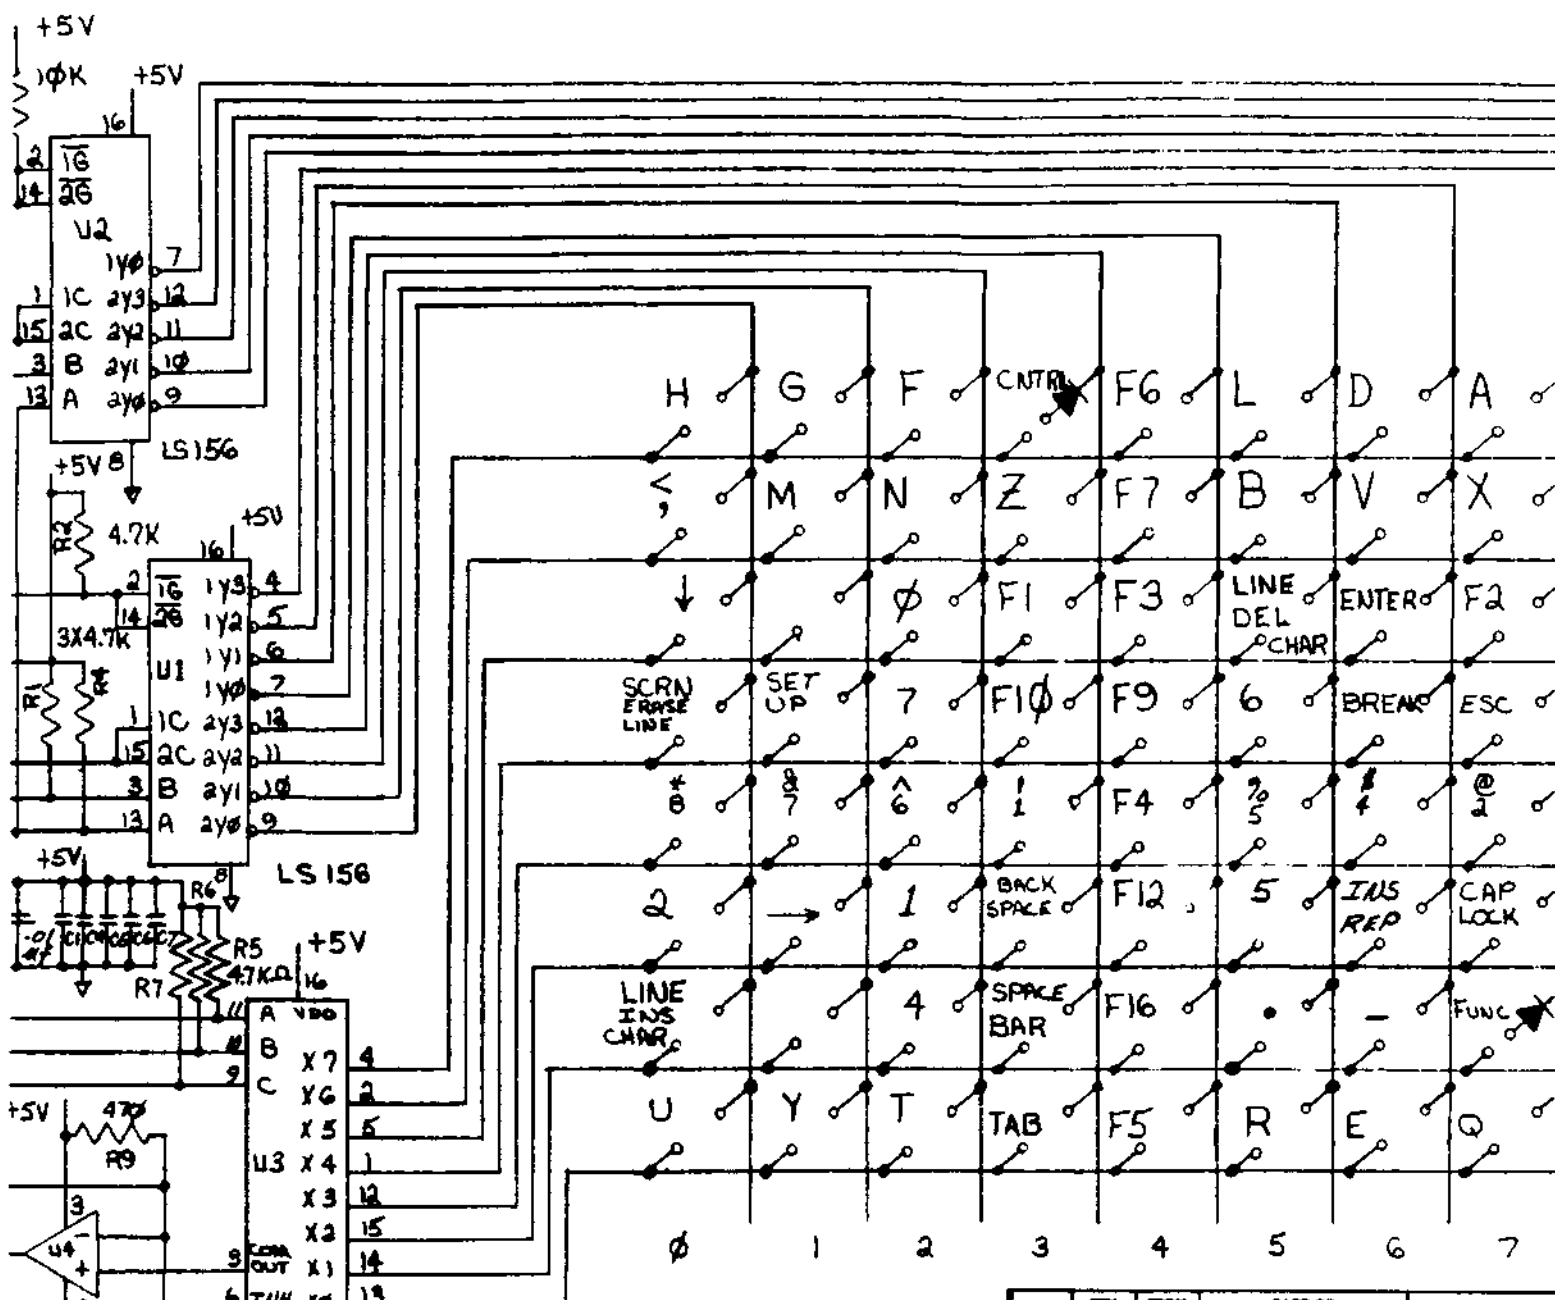 +5V
10K
+5V
16
2 1G
14 2G
U2
1Y0 7
1 1C 2Y3 12
15 2C 2Y2 11
3 B 2Y1 10
13 A 2Y0 9
8
LS156
+5V
R2
4.7K
+5V
16
2 1G 1Y3 4
14 2G 1Y2 5
3X4.7K
U1
1Y1 6
1Y0 7
R1
R4
1 1C 2Y3 12
15 2C 2Y2 11
3 B 2Y1 10
13 A 2Y0 9
8
LS156
+5V
.01
C1
R6
R5
4.7KΩ
R7
+5V
16
11 A VDD
10 B
9 C
X7 4
X6 2
X5 5
U3 X4 1
X3 12
X2 15
3 COM OUT X1 14
6 INH X0 13
+5V
470
R9
3
U4
-
+
H G F CNTRL F6 L D A
<, M N Z F7 B V X
↓ Ø F1 F3 LINE DEL CHAR ENTER F2
SCRN ERASE LINE SET UP 7 F1Ø F9 6 BREAK ESC
* 8 & 7 ^ 6 ! 1 F4 % 5 $ 4 @ 2
2 → 1 BACK SPACE F12 5 INS REP CAP LOCK
LINE INS CHAR 4 SPACE BAR F16 . - FUNC
U Y T TAB F5 R E Q
Ø 1 2 3 4 5 6 7